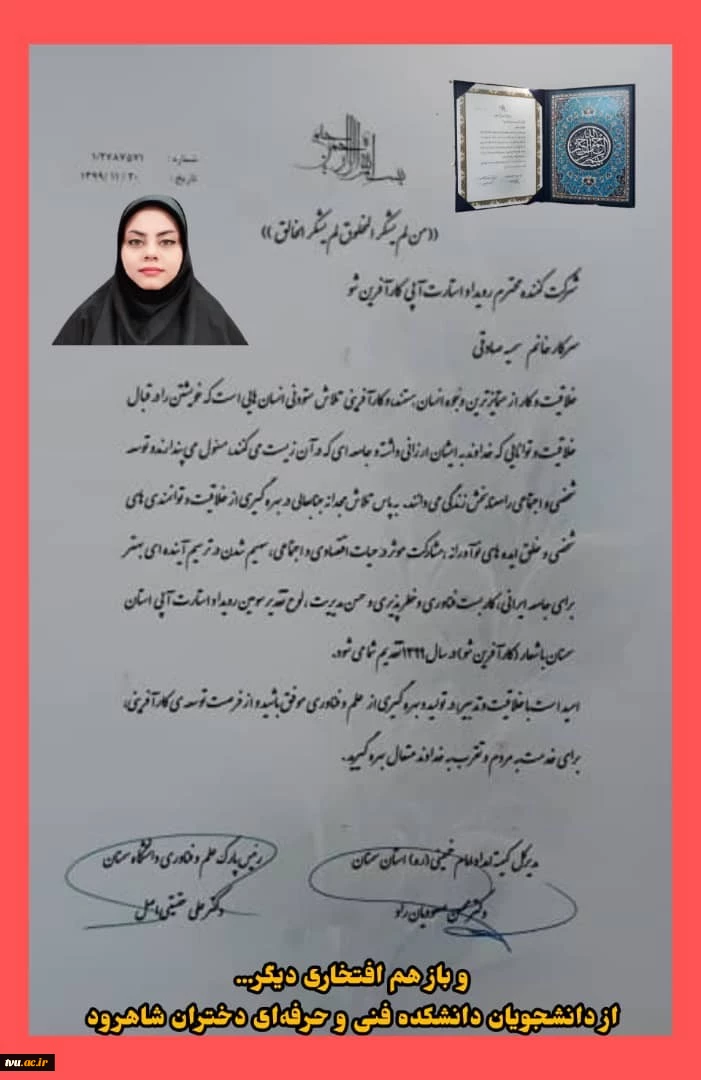 بسم الله الرحمن الرحیم
شماره: ۱/۲۷۸۷۵۷۱
تاریخ: ۱۳۹۹/۱۱/۲۰
((من لم یشکر المخلوق لم یشکر الخالق))
شرکت کننده محترم رویداد استارت آپی کارآفرین شو
سرکار خانم سمیه صادقی
خلاقیت و کار از متمایزترین وجوه انسان هستند، و کارآفرینی تلاش ستودنی انسان هایی است که خویشتن را در قبال
خلاقیت و توانایی که خداوند به ایشان ارزانی داشته و جامعه ای که در آن زیست می کنند، مسئول می پندارند و توسعه
شخصی و اجتماعی را معنا بخش زندگی می دانند. به پاس تلاش مجدانه جنابعالی در بهره گیری از خلاقیت و توانمندی های
شخصی و خلق ایده های نوآورانه، مشارکت موثر در حیات اقتصادی و اجتماعی، سهیم شدن در ترسیم آینده ای بهتر
برای جامعه ایرانی، کاربست فناوری و خطرپذیری و حسن مدیریت، لوح تقدیر سومین رویداد استارت آپی استان
سمنان با شعار (کارآفرین شو) در سال ۱۳۹۹ تقدیم شما می شود.
امید است با خلاقیت و تدبیر، در تولید و بهره گیری از علم و فناوری موفق باشید و از فرصت توسعه ی کارآفرینی،
برای خدمت به مردم و تقرب به خداوند متعال بهره گیرید.
مدیرکل کمیته امداد امام خمینی (ره) استان سمنان
دکتر محسن مسعودیان راد
رئیس پارک علم و فناوری دانشگاه سمنان
دکتر علی حقیقی اصل
و باز هم افتخاری دیگر...
از دانشجویان دانشکده فنی و حرفه‌ای دختران شاهرود
tvu.ac.ir